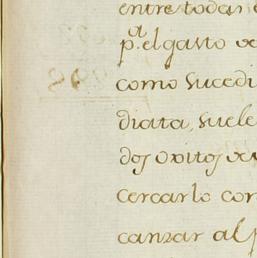 entre todas
p.ª el gasto de
como sucedi
diata, suele
dos
cercarlo con
canzar al p